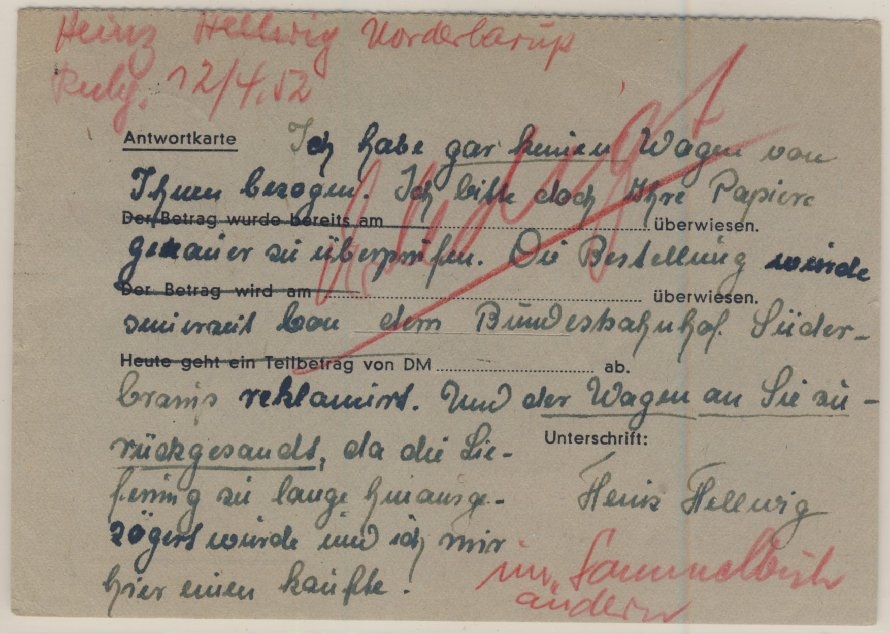 Heinz Hellwig Vorderbarup
12/4.52
Antwortkarte Ich habe gar keinen Wagen von
Ihnen bezogen. Ich bitte doch Ihre Papiere
Der Betrag wurde bereits am überwiesen.
genauer zu überprüfen. Die Bestellung wurde
Der Betrag wird am überwiesen.
seinerzeit von dem Bundesbahnhof Süder-
Heute geht ein Teilbetrag von DM ab.
brarup reklamirt. Und der Wagen an Sie zu-
rückgesandt, da die Lie-
Unterschrift:
ferung zu lange hinausge-
Heinz Hellwig
zögert wurde und ich mir
hier einen kaufte.
erledigt
im Sammelbuch
ändern